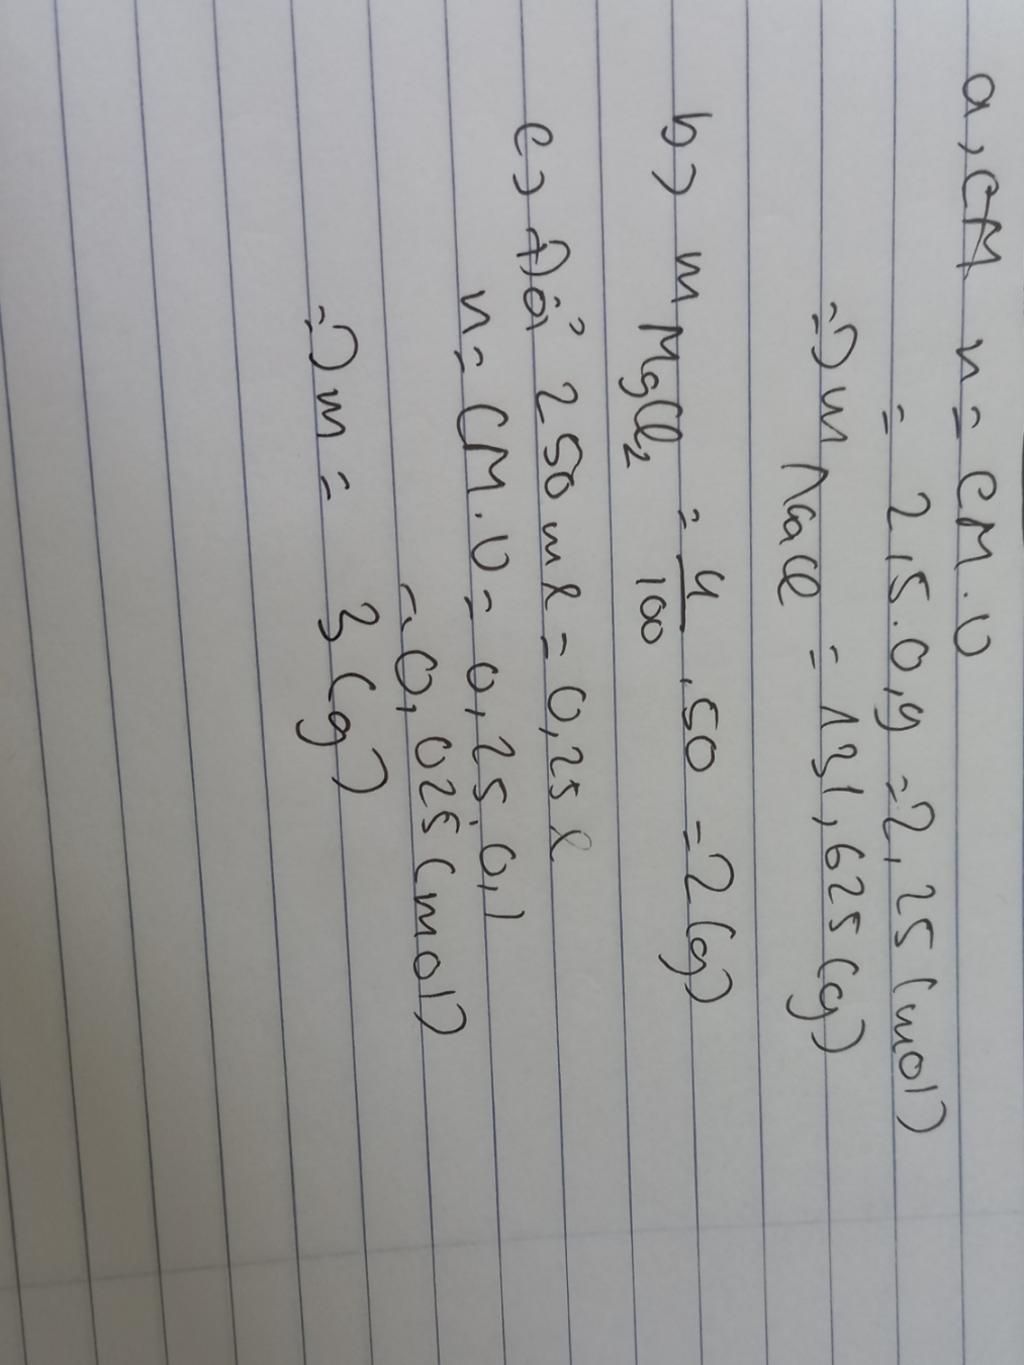 a, CM n = CM.V
= 2,5.0,9 = 2,25 (mol)
=> m NaCl = 131,625 (g)
b) m MgCl2 = 4/100 .50 = 2 (g)
c) Đổi 250 ml = 0,25 l
n = CM.V = 0,25.0,1
= 0,025 (mol)
=> m = 3 (g)